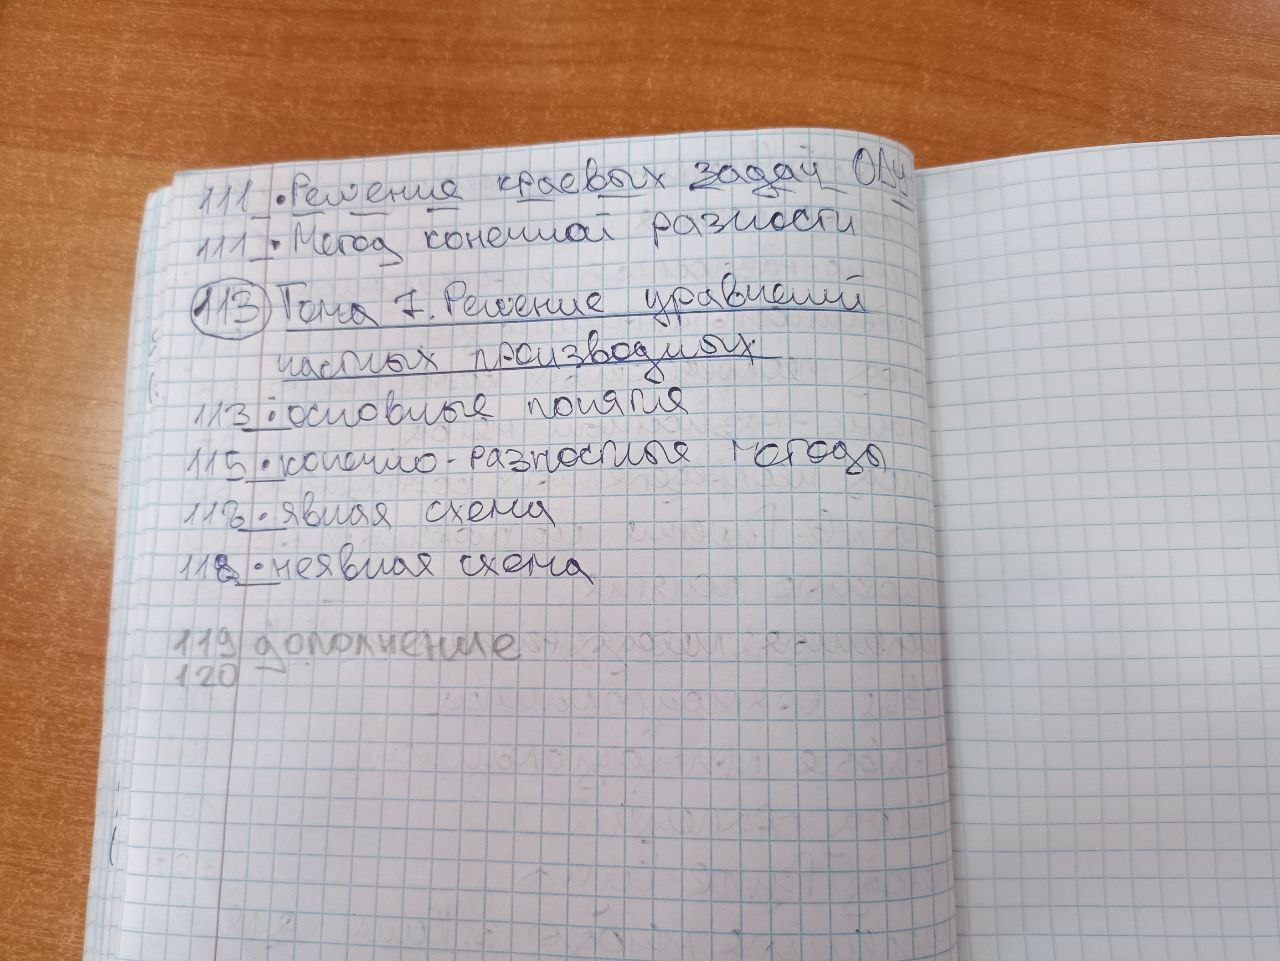 111 • Решение краевых задач ОДУ
111 • Метод конечной разности
113 Тема 7. Решение уравнений
частных производных
113 • основные понятия
115 • конечно-разностные методы
116 • явная схема
118 • неявная схема
119 дополнение
120